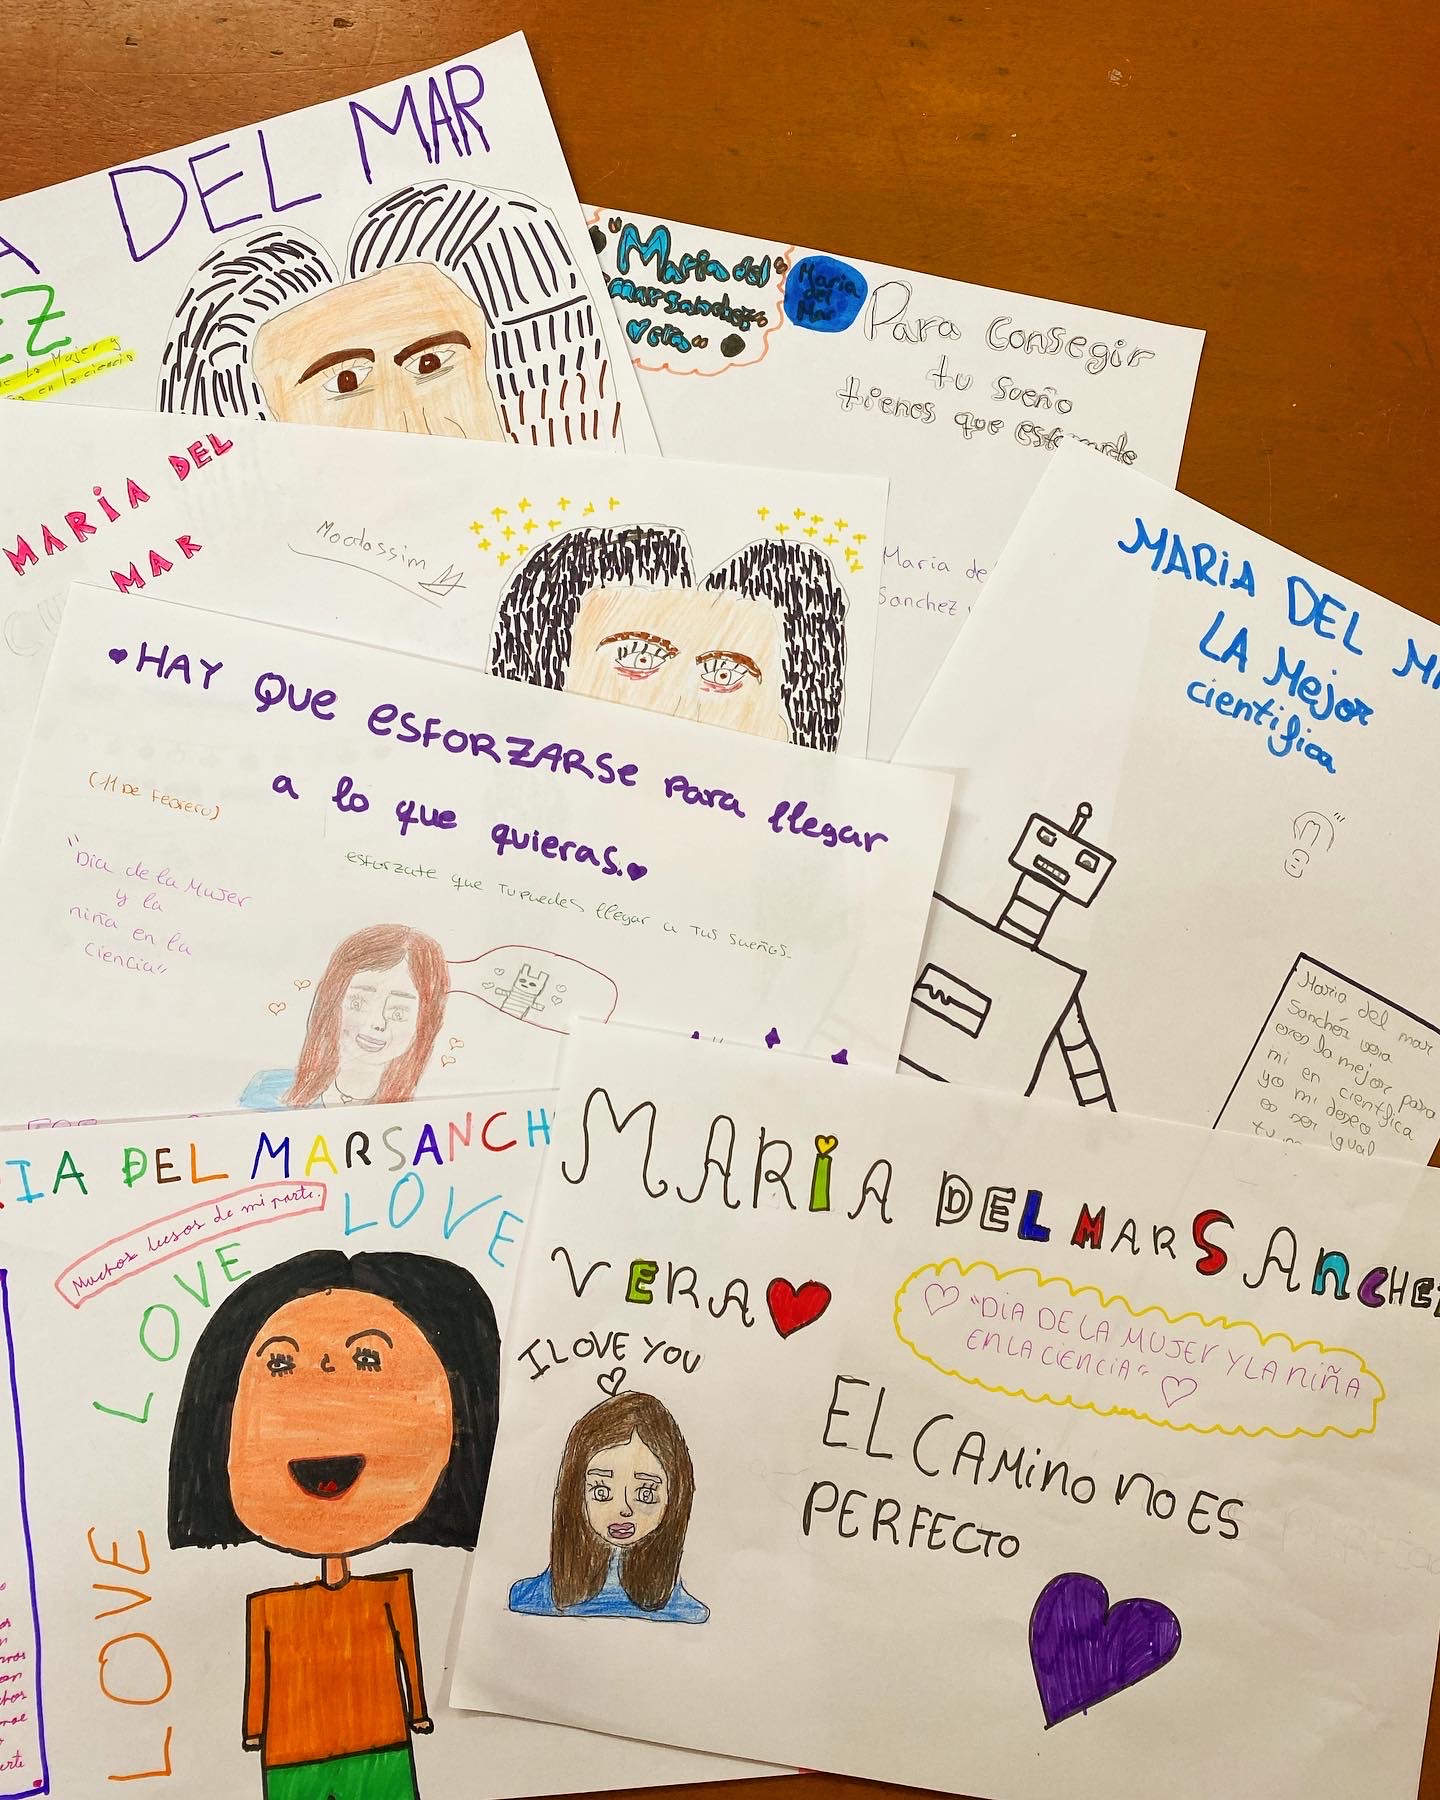 DEL MAR
EZ
La Mujer y
en la ciencia
"Maria del
marsanchez
Vera"
Maria
del
Mar
Para Consegir
tu sueño
tienes que
MARiA DEL
MAR
Maria de
Sanchez
MARiA DEL M
LA Mejor
científica
HAY QUE ESFORZARSE para llegar
a lo que quieras.
(11 DE Febrero)
"Dia de la Mujer
y la
niña en la
ciencia"
esforzate que Tu puedes llegar a Tus sueños.
Maria del mar
Sanchez vera
eres la mejor para
mi en científica
yo mi deseo
es ser igual
tu
IA DEL MARSANCH
Muchos besos de mi parte.
LOVE
LOVE
LOVE
MARiA DEL MARSANCHE
VERA
I LOVE YOU
"DIA DE LA MUJER Y LA NiÑA
EN LA CIENCIA"
EL CAMiNO NO ES
PERFECTO